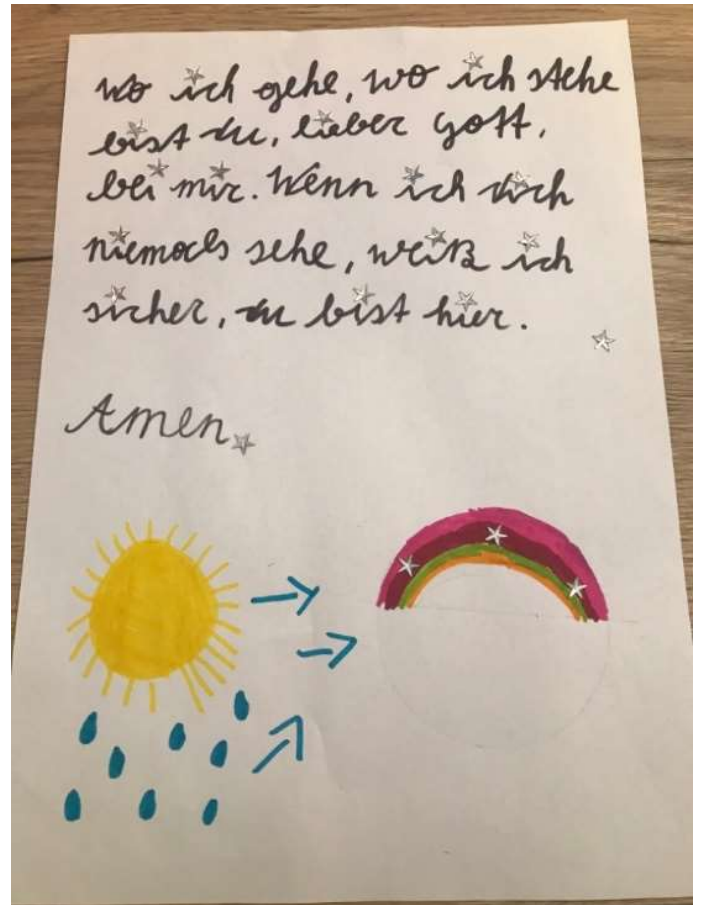 Wo ich gehe, wo ich stehe
bist du, lieber Gott,
bei mir. Wenn ich dich
niemals sehe, weiß ich
sicher, du bist hier.
Amen